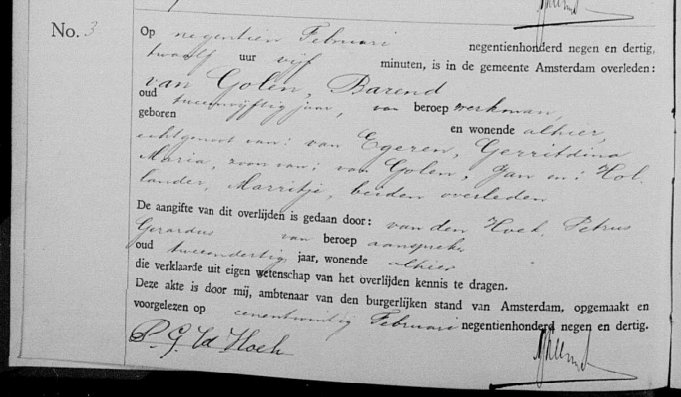 No. 3
Op negentien Februari negentienhonderd negen en dertig,
twaalf uur vijf minuten, is in de gemeente Amsterdam overleden:
van Golen, Barend
oud tweeenvijftig jaar, van beroep werkman,
geboren en wonende alhier,
echtgenoot van: van Egeren, Gerritdina
Maria, zoon van: van Golen, Jan en: Hol
lander, Marritje, beiden overleden
De aangifte van dit overlijden is gedaan door: van den Hoek, Petrus
Gerardus van beroep aanspreker
oud tweeendertig jaar, wonende alhier
die verklaarde uit eigen wetenschap van het overlijden kennis te dragen.
Deze akte is door mij, ambtenaar van den burgerlijken stand van Amsterdam, opgemaakt en
voorgelezen op eenentwintig Februari negentienhonderd negen en dertig.
P. G. vd Hoek